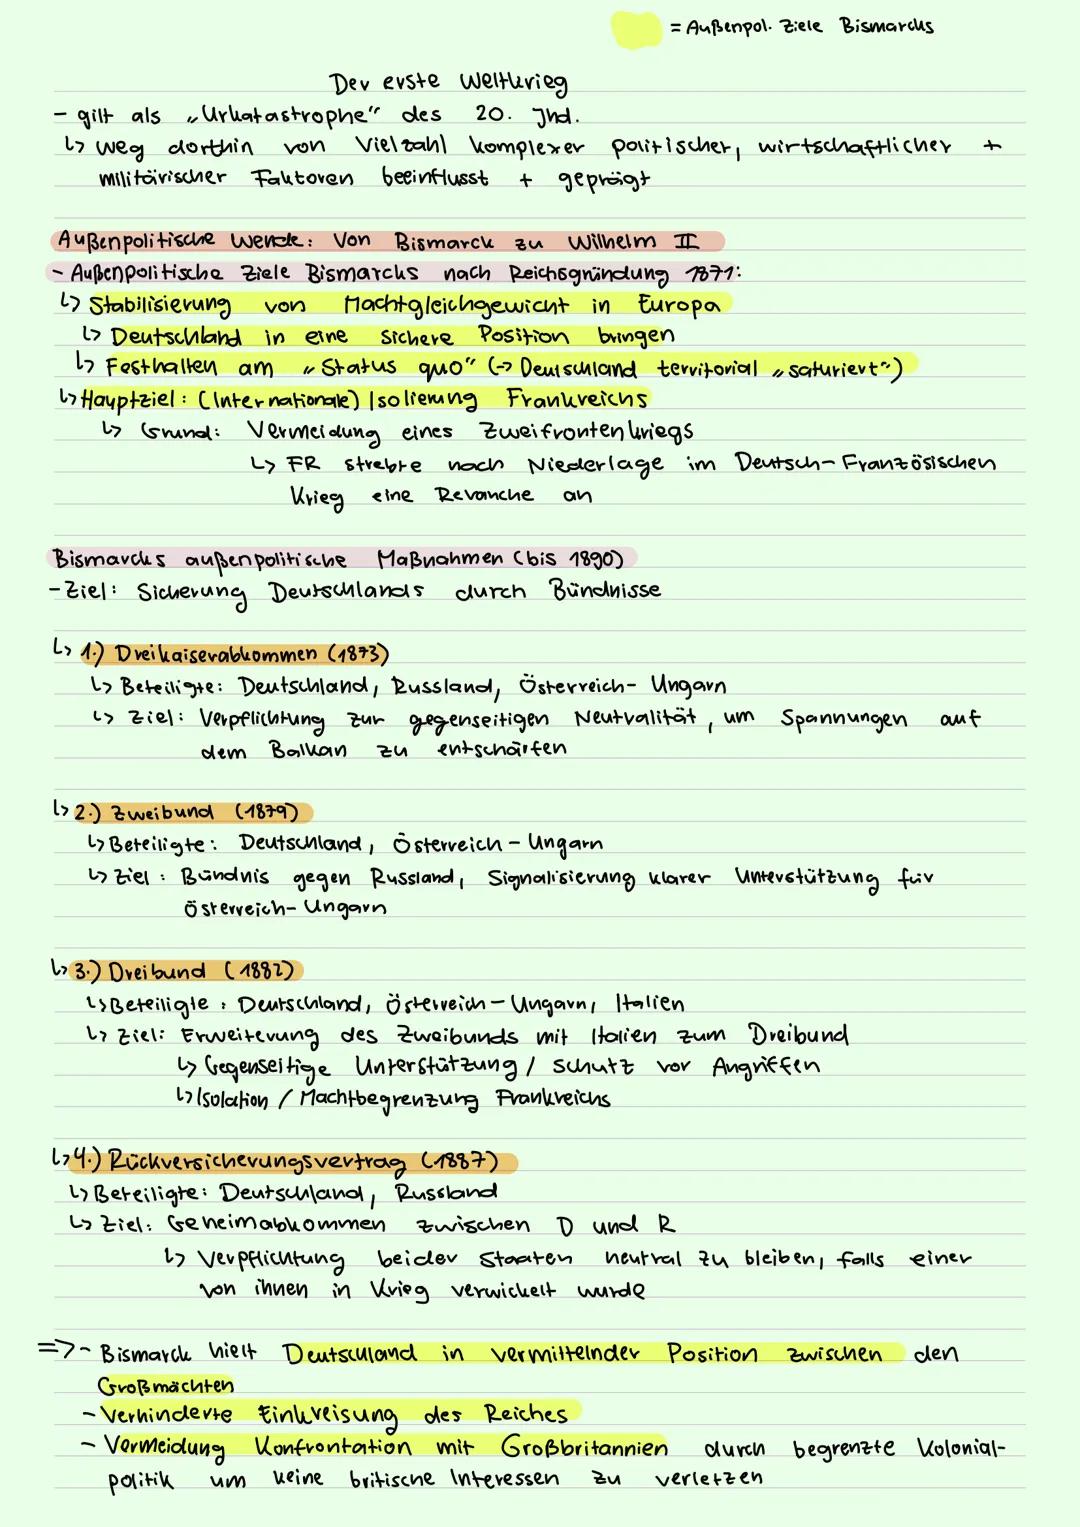 = Außenpol. Ziele Bismarcks
Der erste Weltkrieg
- gilt als „Urkatastrophe" des 20. Jhd.
↳ Weg dorthin von Vielzahl komplexer politischer, wirtschaftlicher +
militärischer Faktoren beeinflusst + geprägt
Außenpolitische Wende: Von Bismarck zu Wilhelm II
- Außenpolitische Ziele Bismarcks nach Reichsgründung 1871:
↳ Stabilisierung von Machtgleichgewicht in Europa
↳ Deutschland in eine sichere Position bringen
↳ Festhalten am „Status quo" (-> Deutschland territorial „saturiert")
↳ Hauptziel: (Internationale) Isolierung Frankreichs
↳ Grund: Vermeidung eines Zweifrontenkriegs
↳ FR strebte nach Niederlage im Deutsch-Französischen
Krieg eine Revanche an
Bismarcks außenpolitische Maßnahmen (bis 1890)
- Ziel: Sicherung Deutschlands durch Bündnisse
↳ 1.) Dreikaiserabkommen (1873)
↳ Beteiligte: Deutschland, Russland, Österreich-Ungarn
↳ Ziel: Verpflichtung zur gegenseitigen Neutralität, um Spannungen auf
dem Balkan zu entschärfen
↳ 2.) Zweibund (1879)
↳ Beteiligte: Deutschland, Österreich-Ungarn
↳ Ziel: Bündnis gegen Russland, Signalisierung klarer Unterstützung für
Österreich-Ungarn
↳ 3.) Dreibund (1882)
↳ Beteiligte: Deutschland, Österreich-Ungarn, Italien
↳ Ziel: Erweiterung des Zweibunds mit Italien zum Dreibund
↳ Gegenseitige Unterstützung / Schutz vor Angriffen
↳ Isolation / Machtbegrenzung Frankreichs
↳ 4.) Rückversicherungsvertrag (1887)
↳ Beteiligte: Deutschland, Russland
↳ Ziel: Geheimabkommen zwischen D und R
↳ Verpflichtung beider Staaten neutral zu bleiben, falls einer
von ihnen in Krieg verwickelt wurde
=> - Bismarck hielt Deutschland in vermittelnder Position zwischen den
Großmächten
- Verhinderte Einkreisung des Reiches
- Vermeidung Konfrontation mit Großbritannien durch begrenzte Kolonial-
politik um keine britische Interessen zu verletzen